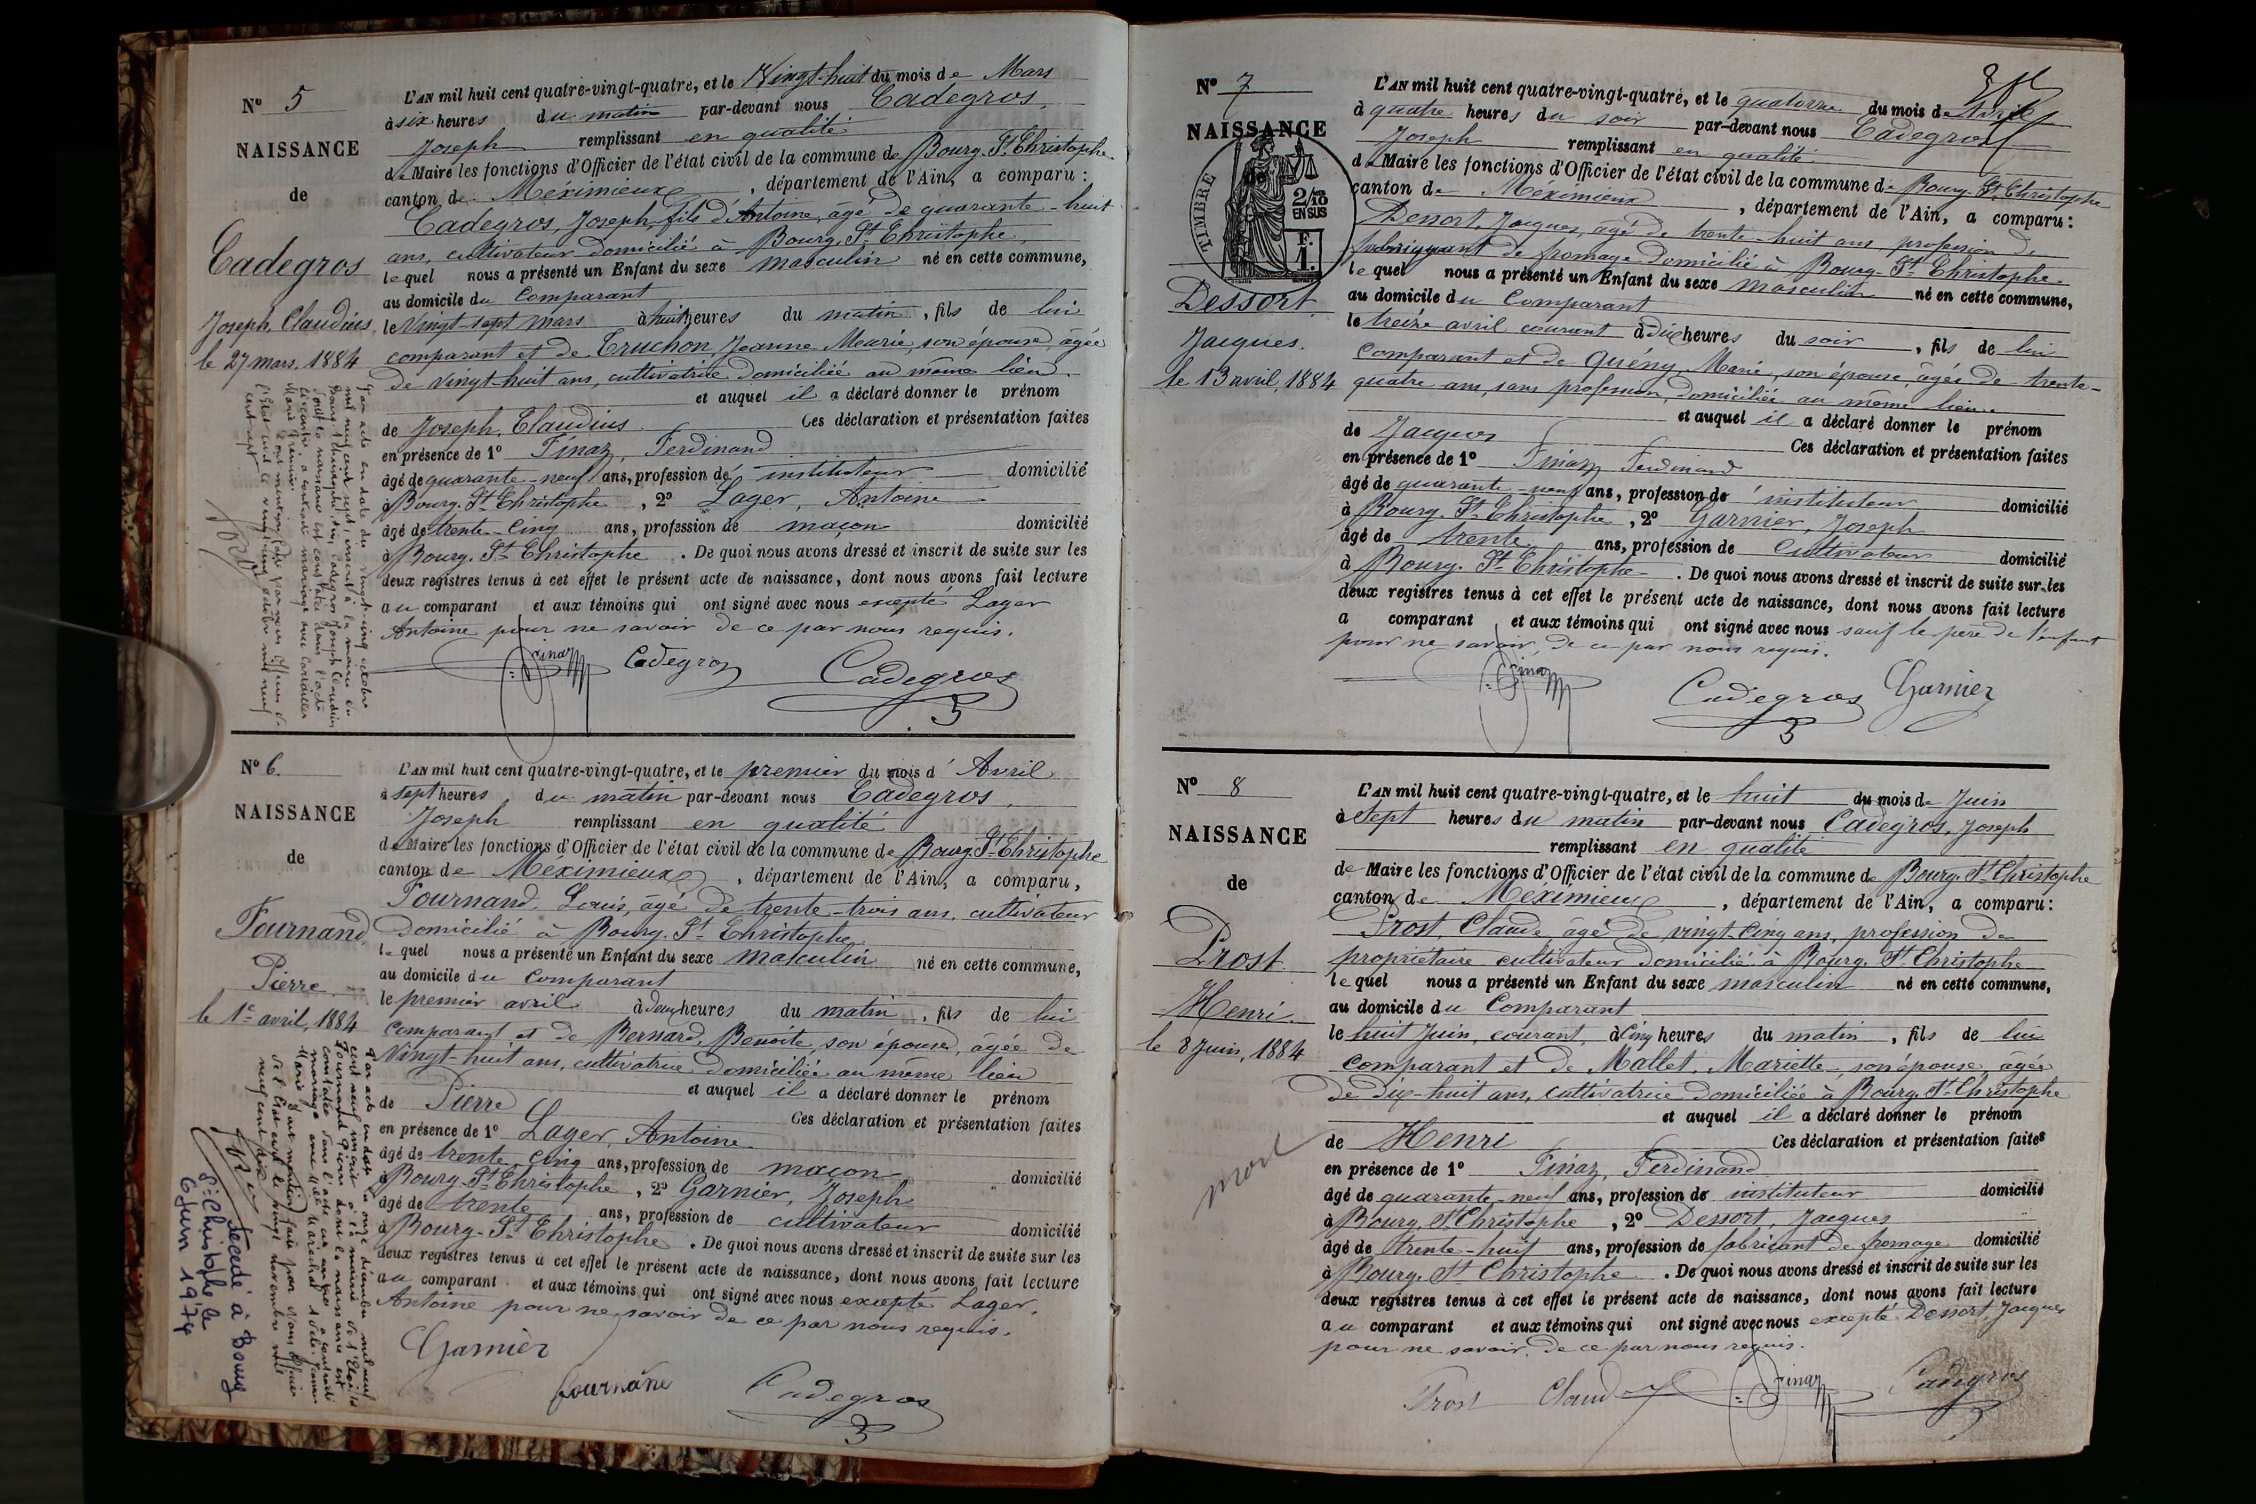 N° 5
NAISSANCE
de
Cadegros
Joseph Claudius
le 27 mars 1884
L'AN mil huit cent quatre-vingt-quatre, et le Vingt-huit du mois de Mars
à six heures du matin par-devant nous Cadegros,
Joseph remplissant en qualité
de Maire les fonctions d'Officier de l'état civil de la commune de Bourg St Christophe
canton de Méximieux, département de l'Ain, a comparu :
Cadegros, Joseph, fils d'Antoine, âgé de quarante-huit
ans, cultivateur domicilié à Bourg St Christophe,
lequel nous a présenté un Enfant du sexe masculin né en cette commune,
au domicile du Comparant
le Vingt-sept mars à huit heures du matin, fils de lui
comparant et de Truchon, Jeanne Marie, son épouse, âgée
de vingt-huit ans, cultivatrice domiciliée au même lieu.
et auquel il a déclaré donner le prénom
de Joseph, Claudius Ces déclaration et présentation faites
en présence de 1° Finaz, Ferdinand
âgé de quarante-neuf ans, profession de instituteur domicilié
à Bourg. St Christophe, 2° Lager, Antoine
âgé de trente-cinq ans, profession de maçon domicilié
à Bourg. St Christophe. De quoi nous avons dressé et inscrit de suite sur les
deux registres tenus à cet effet le présent acte de naissance, dont nous avons fait lecture
au comparant et aux témoins qui ont signé avec nous excepté Lager
Antoine pour ne savoir de ce par nous requis.
Finaz Cadegros Cadegros
Par acte en date du vingt-cinq octobre
mil neuf cent sept inscrit à la mairie de
Bourg St Christophe Ain, Cadegros Joseph Claudius
dont la naissance est constatée dans l'acte
ci-contre, a contracté mariage avec
N° 6.
NAISSANCE
de
Fournand,
Pierre
le 1er avril, 1884
L'AN mil huit cent quatre-vingt-quatre, et le premier du mois d'Avril
à sept heures du matin par-devant nous Cadegros,
Joseph remplissant en qualité
de Maire les fonctions d'Officier de l'état civil de la commune de Bourg St Christophe
canton de Méximieux, département de l'Ain, a comparu,
Fournand, Louis, âgé de trente-trois ans, cultivateur
domicilié à Bourg. St Christophe
lequel nous a présenté un Enfant du sexe masculin né en cette commune,
au domicile du Comparant
le premier avril à deux heures du matin, fils de lui
comparant et de Bernard, Benoite, son épouse, âgée de
Vingt-huit ans, cultivatrice domiciliée au même lieu
et auquel il a déclaré donner le prénom
de Pierre Ces déclaration et présentation faites
en présence de 1° Lager, Antoine
âgé de trente cinq ans, profession de maçon domicilié
à Bourg St Christophe, 2° Garnier, Joseph
âgé de trente ans, profession de cultivateur domicilié
à Bourg-St Christophe. De quoi nous avons dressé et inscrit de suite sur les
deux registres tenus à cet effet le présent acte de naissance, dont nous avons fait lecture
au comparant et aux témoins qui ont signé avec nous excepté Lager.
Antoine pour ne savoir de ce par nous requis.
Garnier
fournand Cadegros
Par acte en date du onze décembre mil neuf
cent neuf inscrit à la mairie
Fournand Pierre dont la naissance est
constatée dans l'acte ci-contre a contracté
mariage avec Melle Maréchal
Décédé à Bourg
St Christophe le
6 Juin 1974
N° 7
NAISSANCE
de
TIMBRE
2/10
EN SUS
F.
1.
Dessort,
Jacques.
le 13 avril, 1884
L'AN mil huit cent quatre-vingt-quatre, et le quatorze du mois de Avril
à quatre heures du soir par-devant nous Cadegros
Joseph remplissant en qualité
de Maire les fonctions d'Officier de l'état civil de la commune de Bourg. St Christophe
canton de Méximieux, département de l'Ain, a comparu :
Dessort, Jacques, âgé de trente-huit ans, profession de
fabriquant de fromage domicilié à Bourg-St Christophe.
lequel nous a présenté un Enfant du sexe masculin né en cette commune,
au domicile du Comparant
le treize avril courant à dix heures du soir, fils de lui
comparant et de Quény, Marie, son épouse, âgée de trente-
quatre ans, sans profession, domiciliée au même lieu.
et auquel il a déclaré donner le prénom
de Jacques Ces déclaration et présentation faites
en présence de 1° Finaz Ferdinand
âgé de quarante-neuf ans, profession de instituteur domicilié
à Bourg. St Christophe, 2° Garnier, Joseph
âgé de trente ans, profession de Cultivateur domicilié
à Bourg. St Christophe. De quoi nous avons dressé et inscrit de suite sur les
deux registres tenus à cet effet le présent acte de naissance, dont nous avons fait lecture
a comparant et aux témoins qui ont signé avec nous sauf le père de l'enfant
pour ne savoir, de ce par nous requis.
Finaz Cadegros Garnier
N° 8
NAISSANCE
de
Prost
Henri.
le 8 Juin, 1884
mort
L'AN mil huit cent quatre-vingt-quatre, et le huit du mois de Juin
à Sept heures du matin par-devant nous Cadegros, Joseph
remplissant en qualité
de Maire les fonctions d'Officier de l'état civil de la commune de Bourg. St Christophe
canton de Méximieux, département de l'Ain, a comparu :
Prost, Claude âgé de vingt-cinq ans, profession de
propriétaire cultivateur domicilié à Bourg. St Christophe
lequel nous a présenté un Enfant du sexe masculin né en cette commune,
au domicile du Comparant
le huit Juin, courant, à Cinq heures du matin, fils de lui
comparant et de Mallet, Mariette, son épouse, âgée
de dix-huit ans, cultivatrice domiciliée à Bourg. St Christophe
et auquel il a déclaré donner le prénom
de Henri Ces déclaration et présentation faites
en présence de 1° Finaz, Ferdinand
âgé de quarante-neuf ans, profession de instituteur domicilié
à Bourg. St Christophe, 2° Dessort, Jacques
âgé de trente-huit ans, profession de fabricant de fromage domicilié
à Bourg. St Christophe. De quoi nous avons dressé et inscrit de suite sur les
deux registres tenus à cet effet le présent acte de naissance, dont nous avons fait lecture
au comparant et aux témoins qui ont signé avec nous excepté Dessort, Jacques
pour ne savoir, de ce par nous requis.
Prost Claude Finaz Cadegros